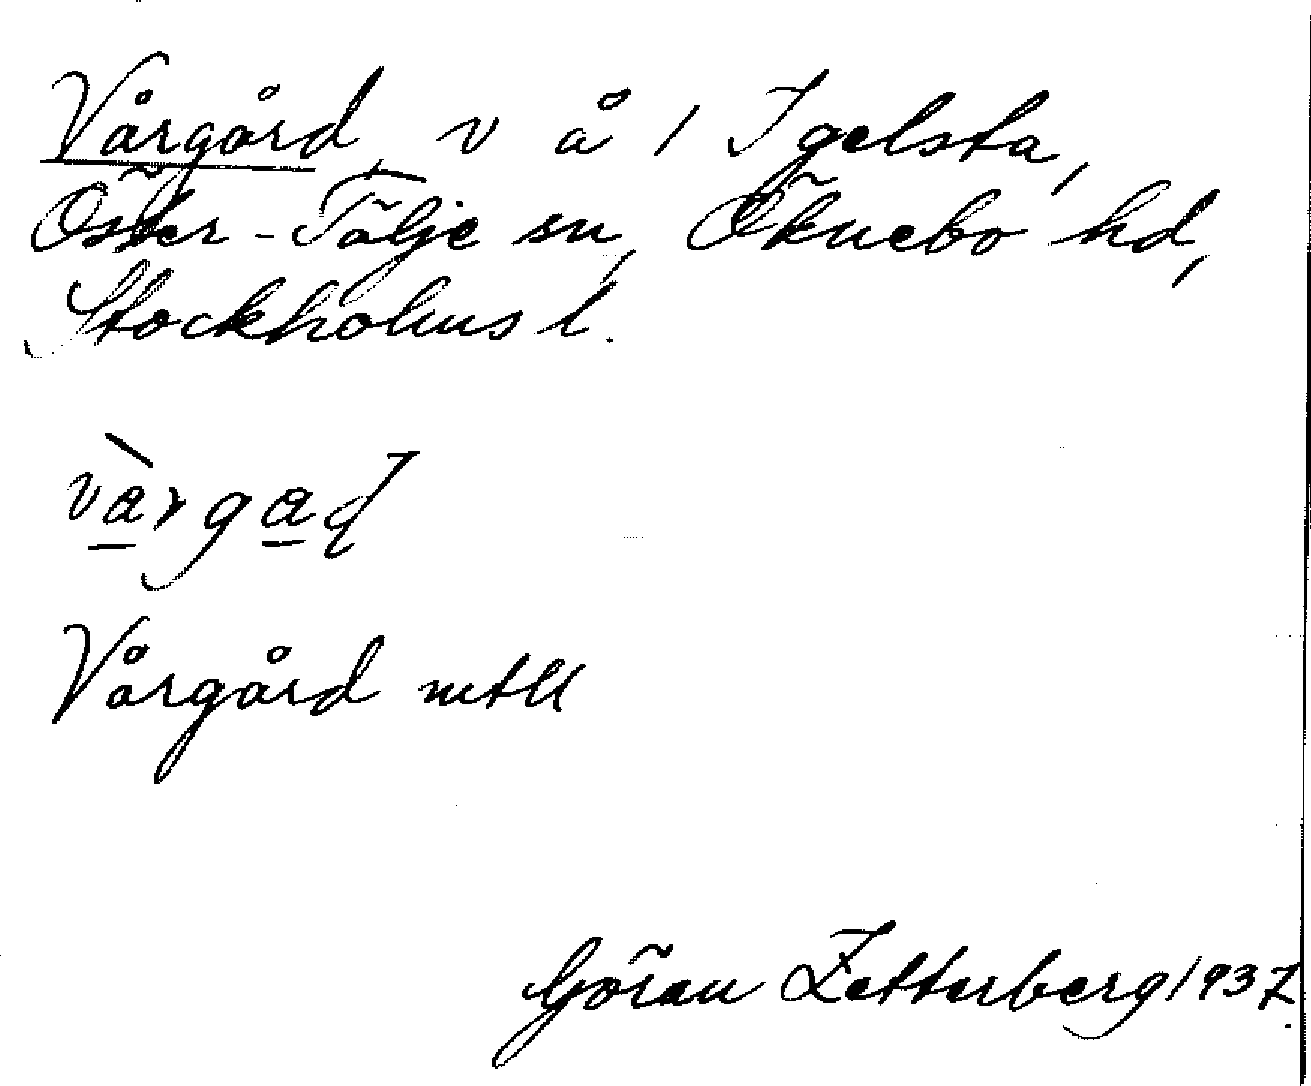 Vårgård, v å 1 Igelsta,
Öster-Tälje sn, Öknebo hd,
Stockholms l.
Vårgård mtll
Göran Zetterberg 1937.